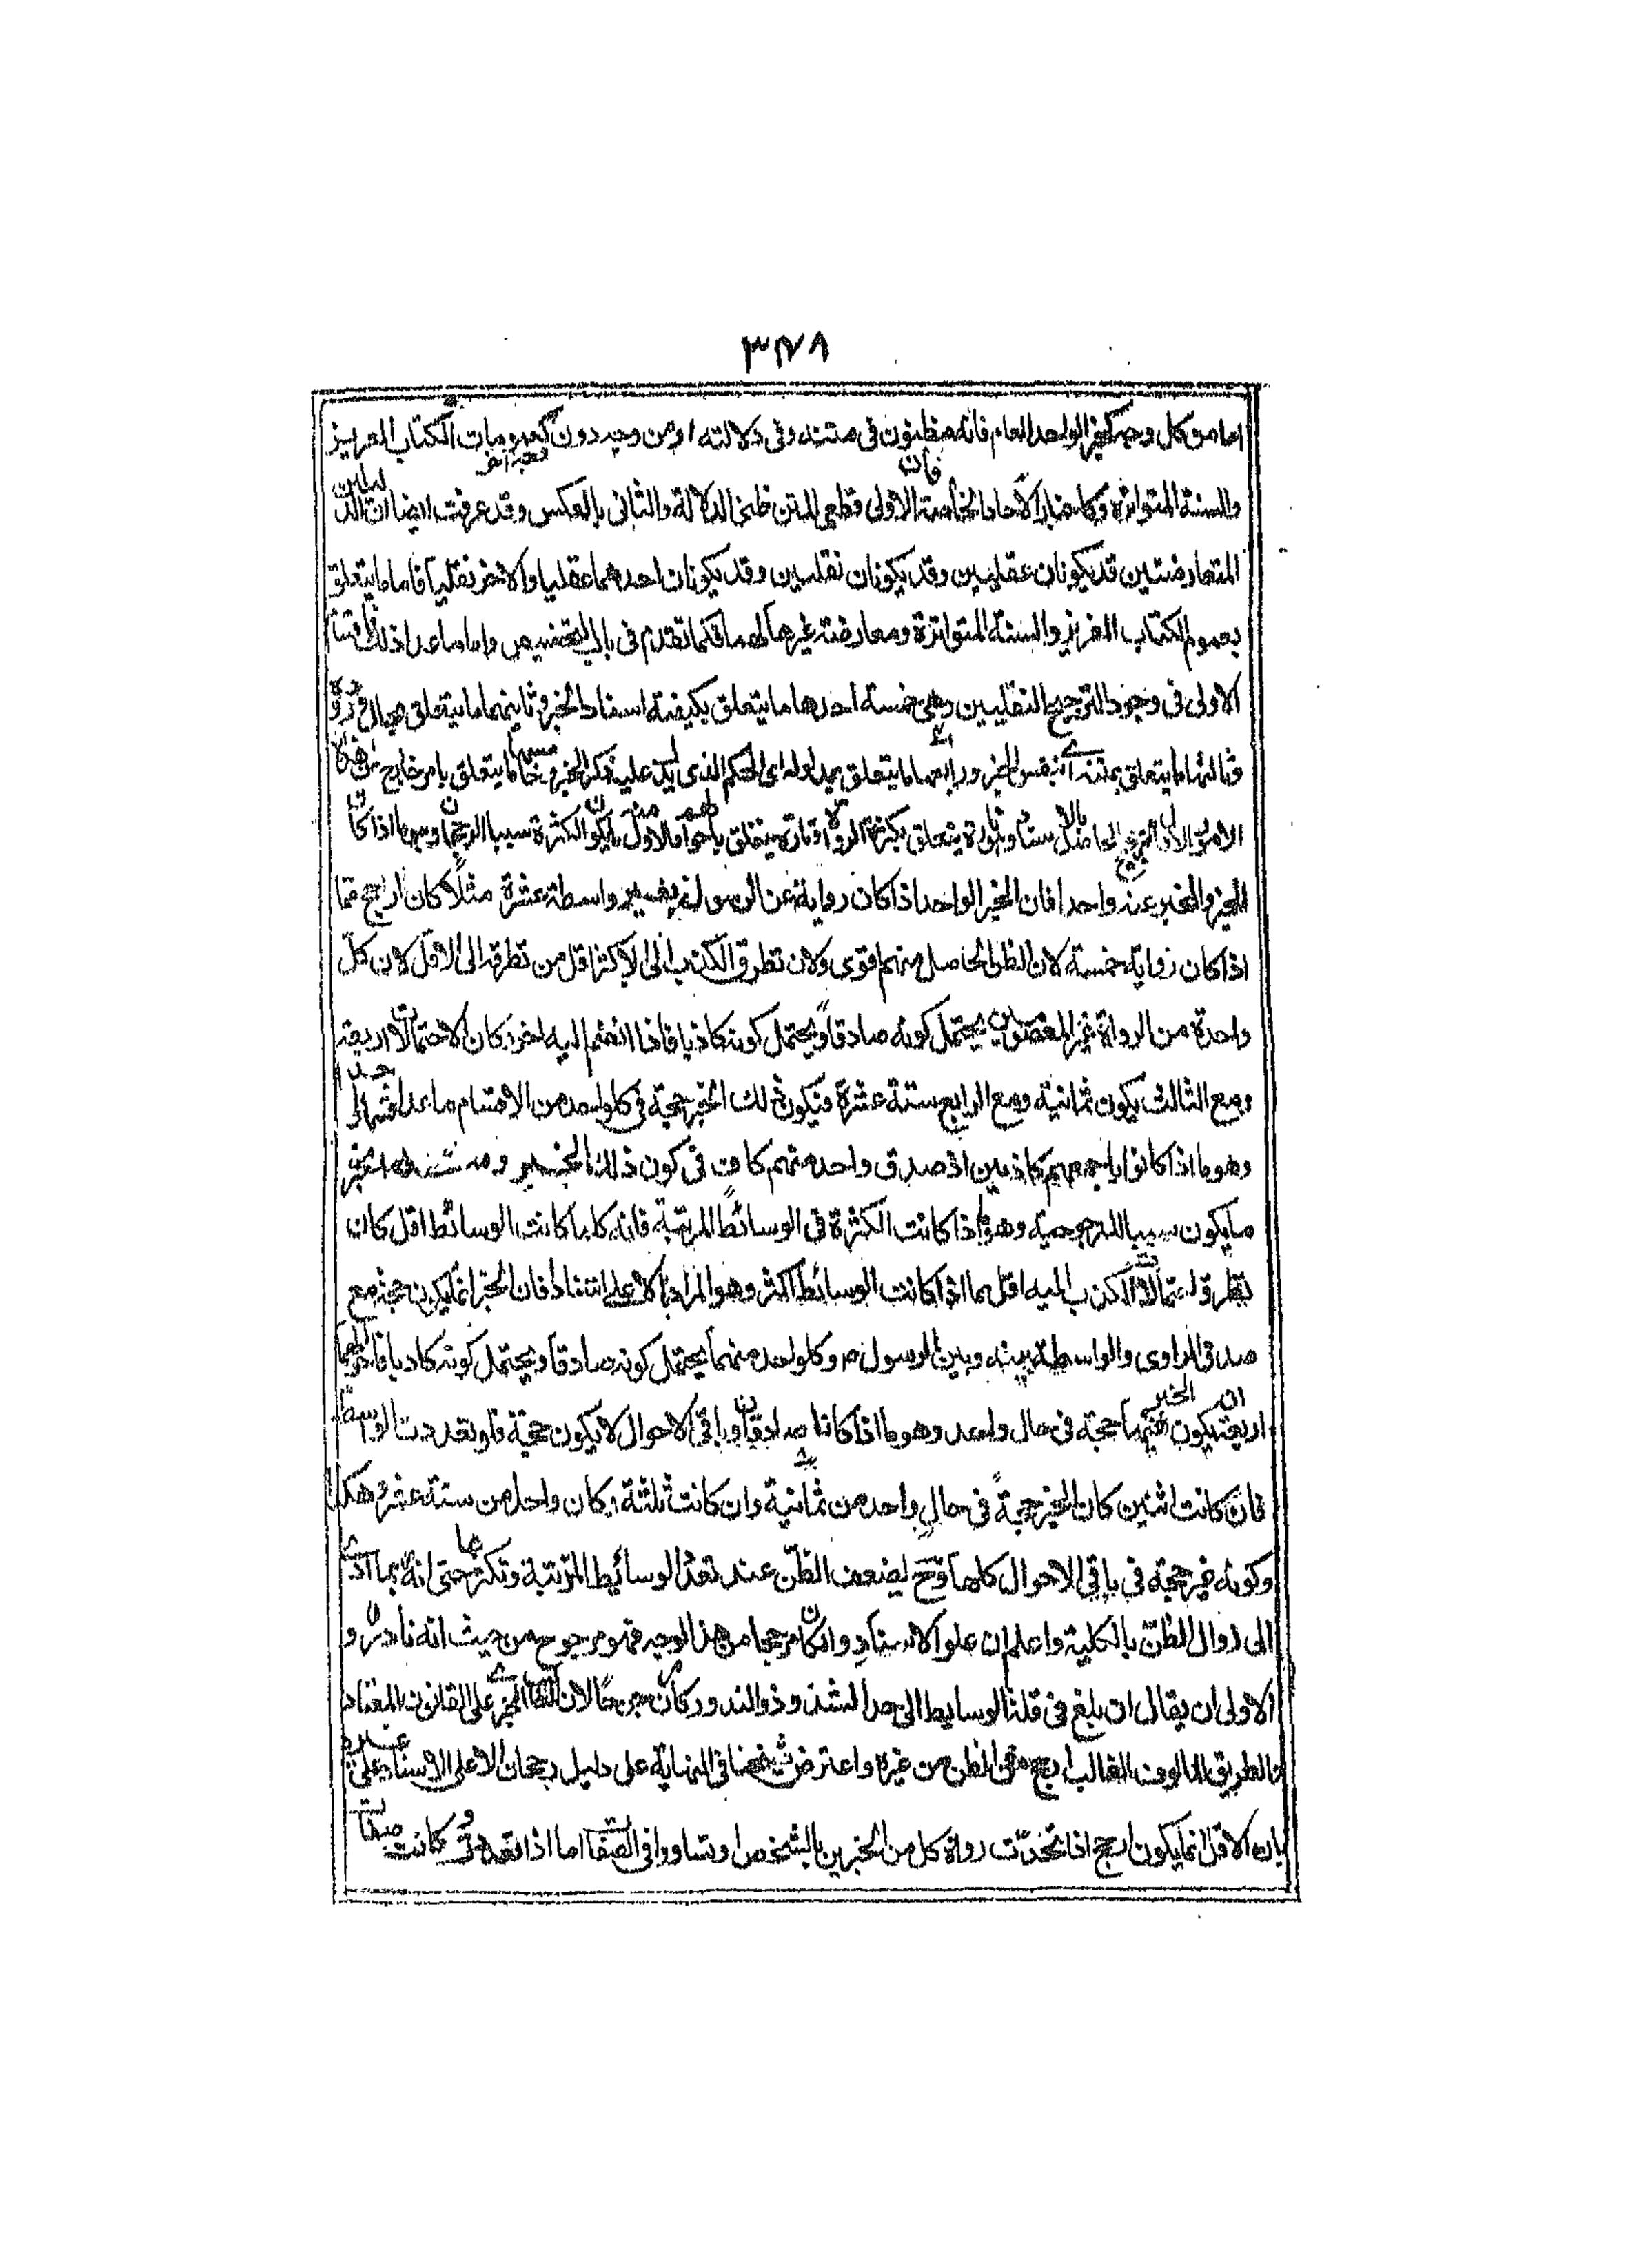 ٣٧٨
اما من كل وجه كخبر الواحد العام فانه مظنون فى متنه وفى دلالته او من وجه دون وجه اخر كعمومات الكتاب العزيز
والسنة المتواترة وكاخبار الآحاد الخاصة فان الاولى قطعى المتن ظنى الدلالة والثانى بالعكس وقد عرفت ايضا ان الدليلين
المتعارضين قد يكونان عقليين وقد يكونان نقليين وقد يكونان احدهما عقليا والاخر نقليا فاما ما يتعلق
بعموم الكتاب العزيز والسنة المتواترة ومعارضة غيرها لهما فكما تقدم فى باب التخصيص واما ما عدا ذلك
الاولى فى وجوه الترجيح النقليين وهى خمسة احدها ما يتعلق بكيفية اسناد الخبر وثانيهما ما يتعلق بحال
وثالثها ما يتعلق بمتنه اى بنفس الخبر ورابعها ما يتعلق بمدلوله اى الحكم الذى يدل عليه ذلك الخبر وخامسها ما يتعلق بامر خارج عن هذه
الامور الاول الترجيح الحاصل بالاسناد وتارة يتعلق بكثرة الرواة وتارة يتعلق باحوالهم فالاول منه ما يكون الكثرة سببا الرجحان وهو ما اذا كان
الخبر والمخبر عنه واحدا فان الخبر الواحد اذا كان رواية عن الرسول بغير واسطة عشرة مثلًا كان ارجح مما
اذا كان رواية خمسة لان الظن الحاصل منهم اقوى ولان تطرق الكذب الى الاكثر اقل من تطرقه الى الاقل لان كل
واحدة من الرواة غير المعصومين يحتمل كونه صادقا ويحتمل كونه كاذبا فاذا انضم اليه اخر كان الاحتمالات اربعة
ومع الثالث يكون ثمانية ومع الرابع ستة عشرة فيكون ذلك الخبر حجة فى كل واحد من الاقسام ما عدا
وهو ما اذا كانوا باجمعهم كاذبين اذ صدق واحد منهم كاف فى كون ذلك الخبر
ما يكون سببا للمرجوحية وهو ما اذا كانت الكثرة فى الوسائط المترتبة فانه كلما كانت الوسائط اقل كان
تطرق احتمالات الكذب اليه اقل مما اذا كانت الوسائط اكثر وهو المراد بالاعلى اسنادا فان الخبر انما يكون حجة مع
صدق الراوى والواسطة بينه وبين الرسول ص وكل واحد منهما يحتمل كونه صادقا ويحتمل كونه كاذبا
اربعة يكون الخبر فيها حجة فى حال واحد وهو ما اذا كانا صادقين وباقى الاحوال لا يكون حجة فلو تعددت الوسائط
فان كانت اثنين كان الخبر حجة فى حال واحد من ثمانية وان كانت ثلثة كان واحد من ستة عشر وهكذا
وكونه غير حجة فى باقى الاحوال كلها وح يضعف الظن عند تعدد الوسائط المترتبة وتكثرها حتى انه ربما ادى
الى زوال الظن بالكلية واعلم ان علو الاسناد وان كان مرجحا من هذا الوجه فهو مرجوح من حيث انه نادر و
الاولى ان يقال ان بلغ فى قلة الوسايط الى حد الشذوذ والندور كان مرجوحًا لان الخبر على القانون المعتاد
والطريق المالوف الغالب ارجح فى الظن من غيره واعترض شيخنا فى النهاية على دليل رجحان الاعلى الاسناد على غيره
بان الاقل انما يكون ارجح اذا اتحدت رواة كل من الخبرين بالشخص او تساووا فى الصفات اما اذا تعددت وكانت صفات